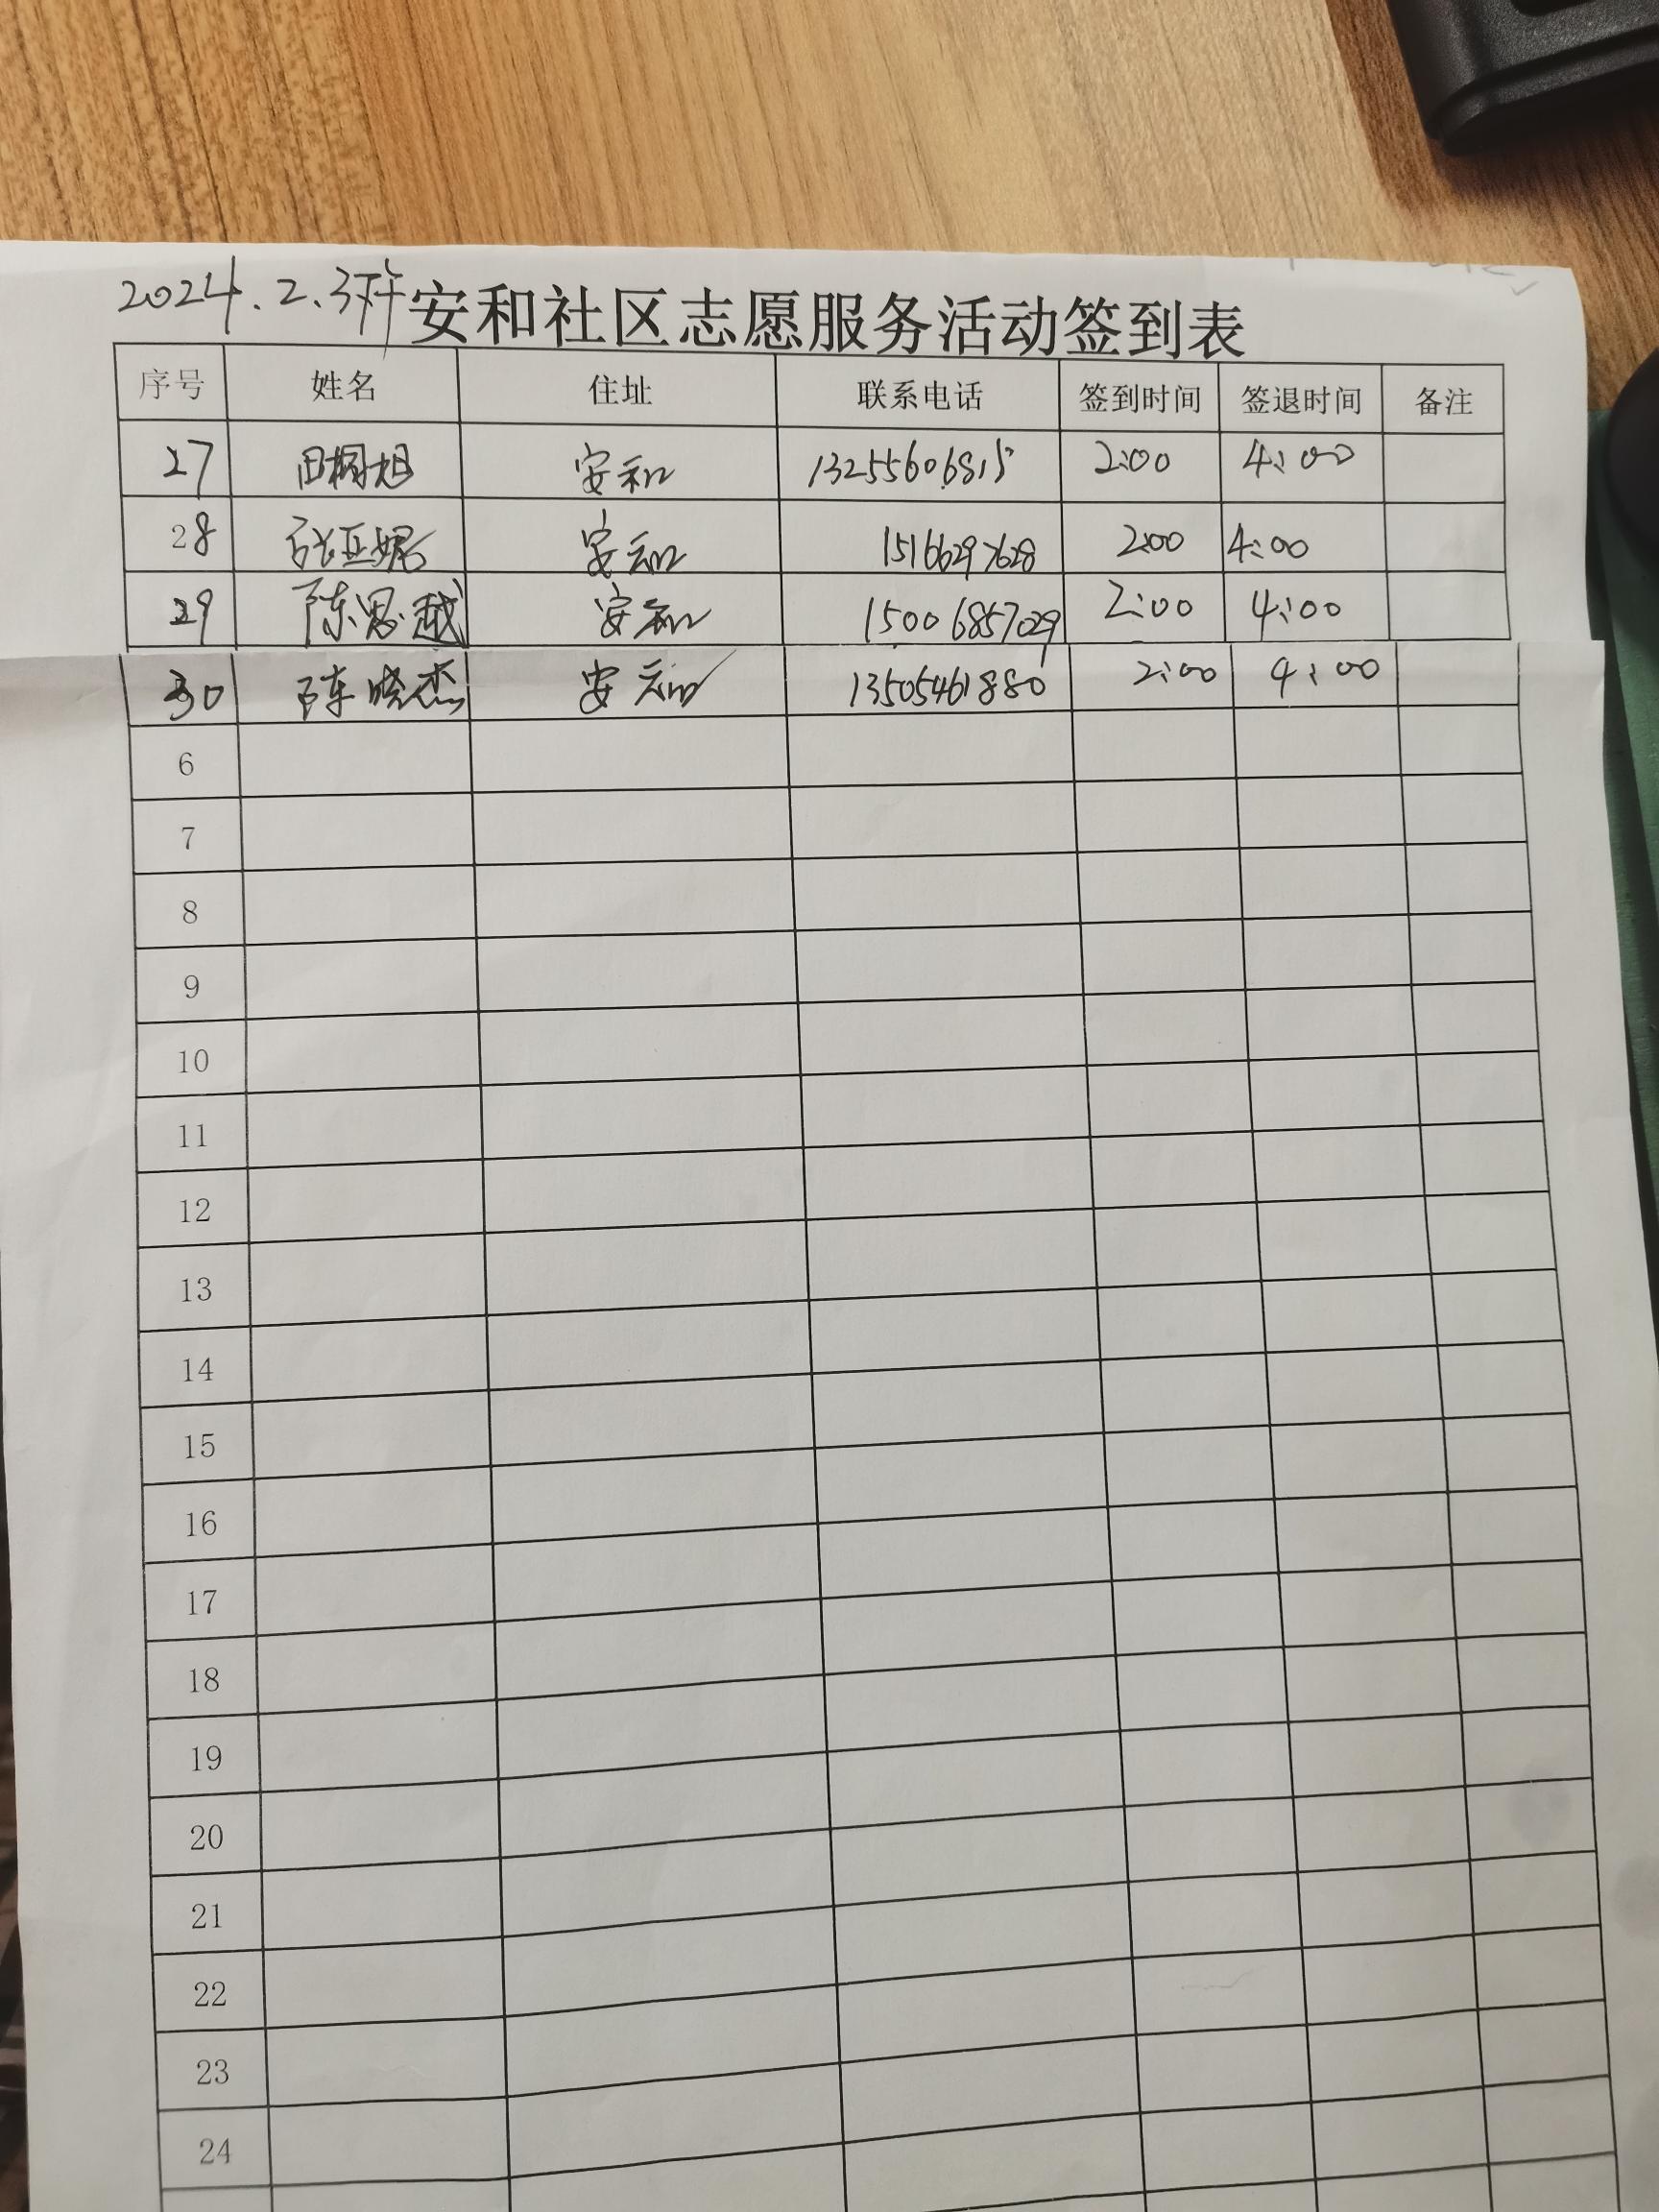 2024.2.3 安和社区志愿服务活动签到表
序号 姓名 住址 联系电话 签到时间 签退时间 备注
27 田桐旭 安和 13255606815 2:00 4:00
28 张亚妮 安和 15166297628 2:00 4:00
29 陈思越 安和 15006857029 2:00 4:00
30 陈晓杰 安和 13505461880 2:00 4:00
6
7
8
9
10
11
12
13
14
15
16
17
18
19
20
21
22
23
24